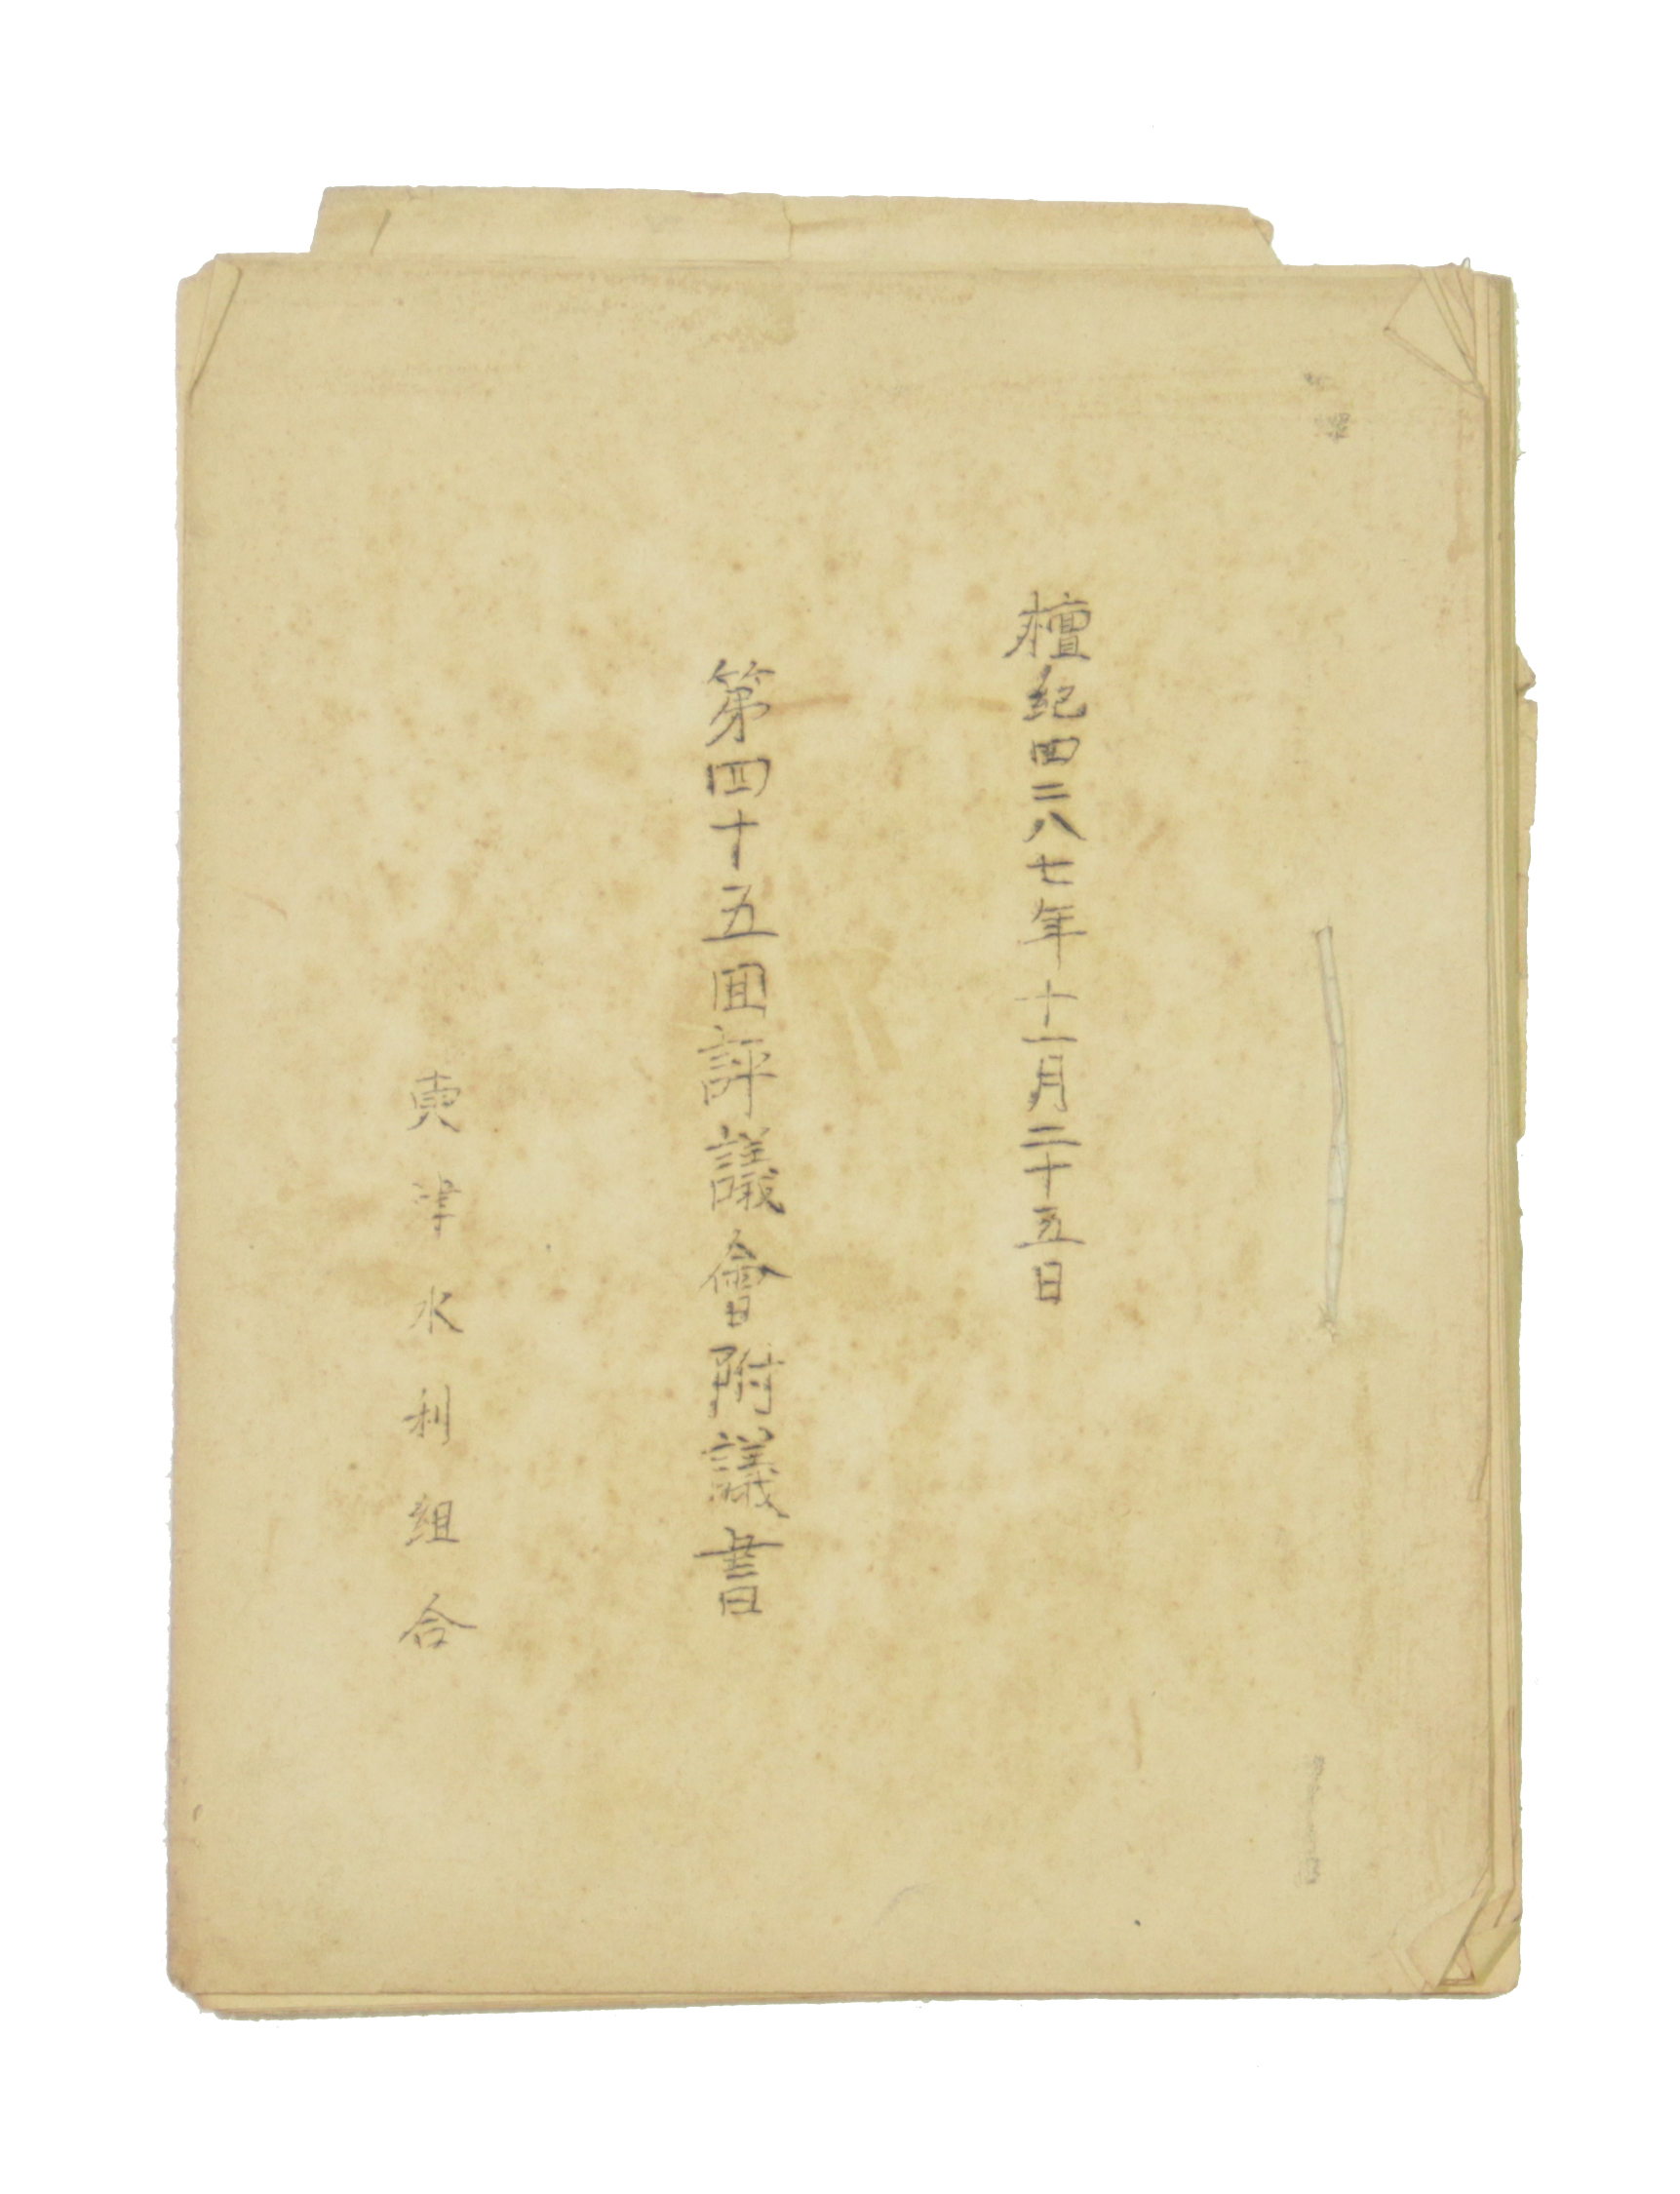 檀紀四二八七年十一月二十五日
第四十五回評議會附議書
東津水利組合